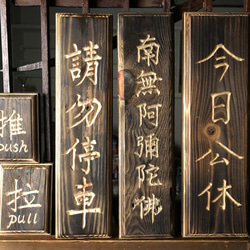 今日公休
南無阿彌陀佛
請勿停車
推
push
拉
pull